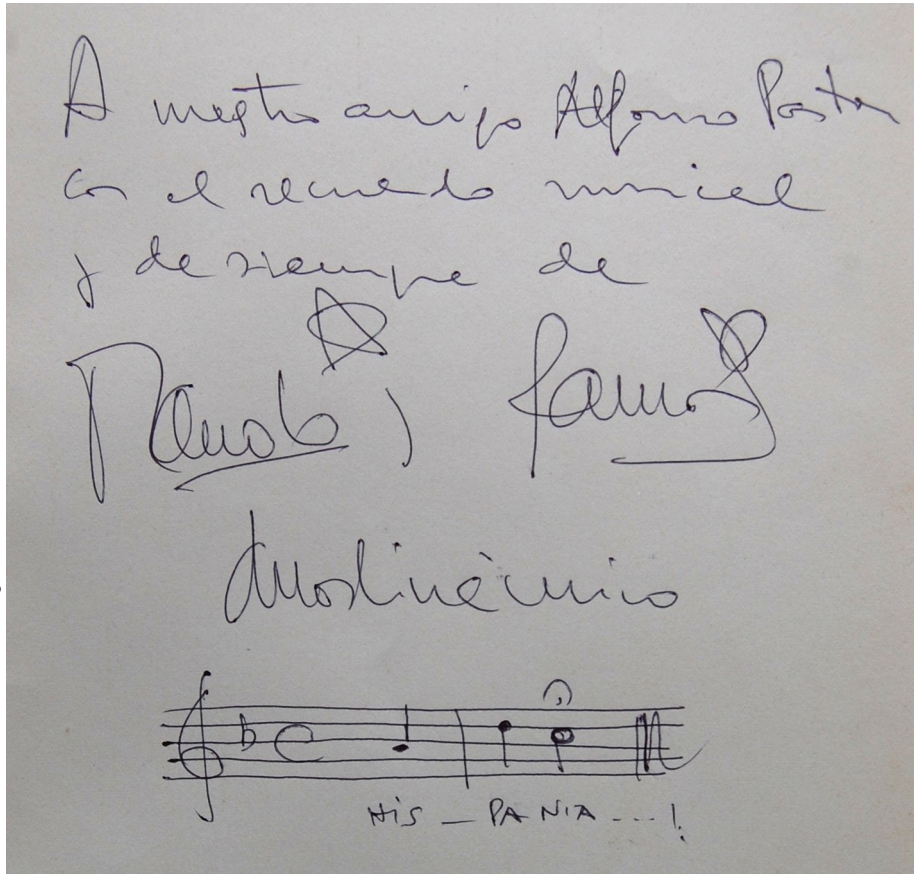 A nuestro amigo Alfonso Pastor
con el recuerdo musical
y de siempre de
Manolo y Ramón
Duo Dinámico
HIS - PANIA ---!